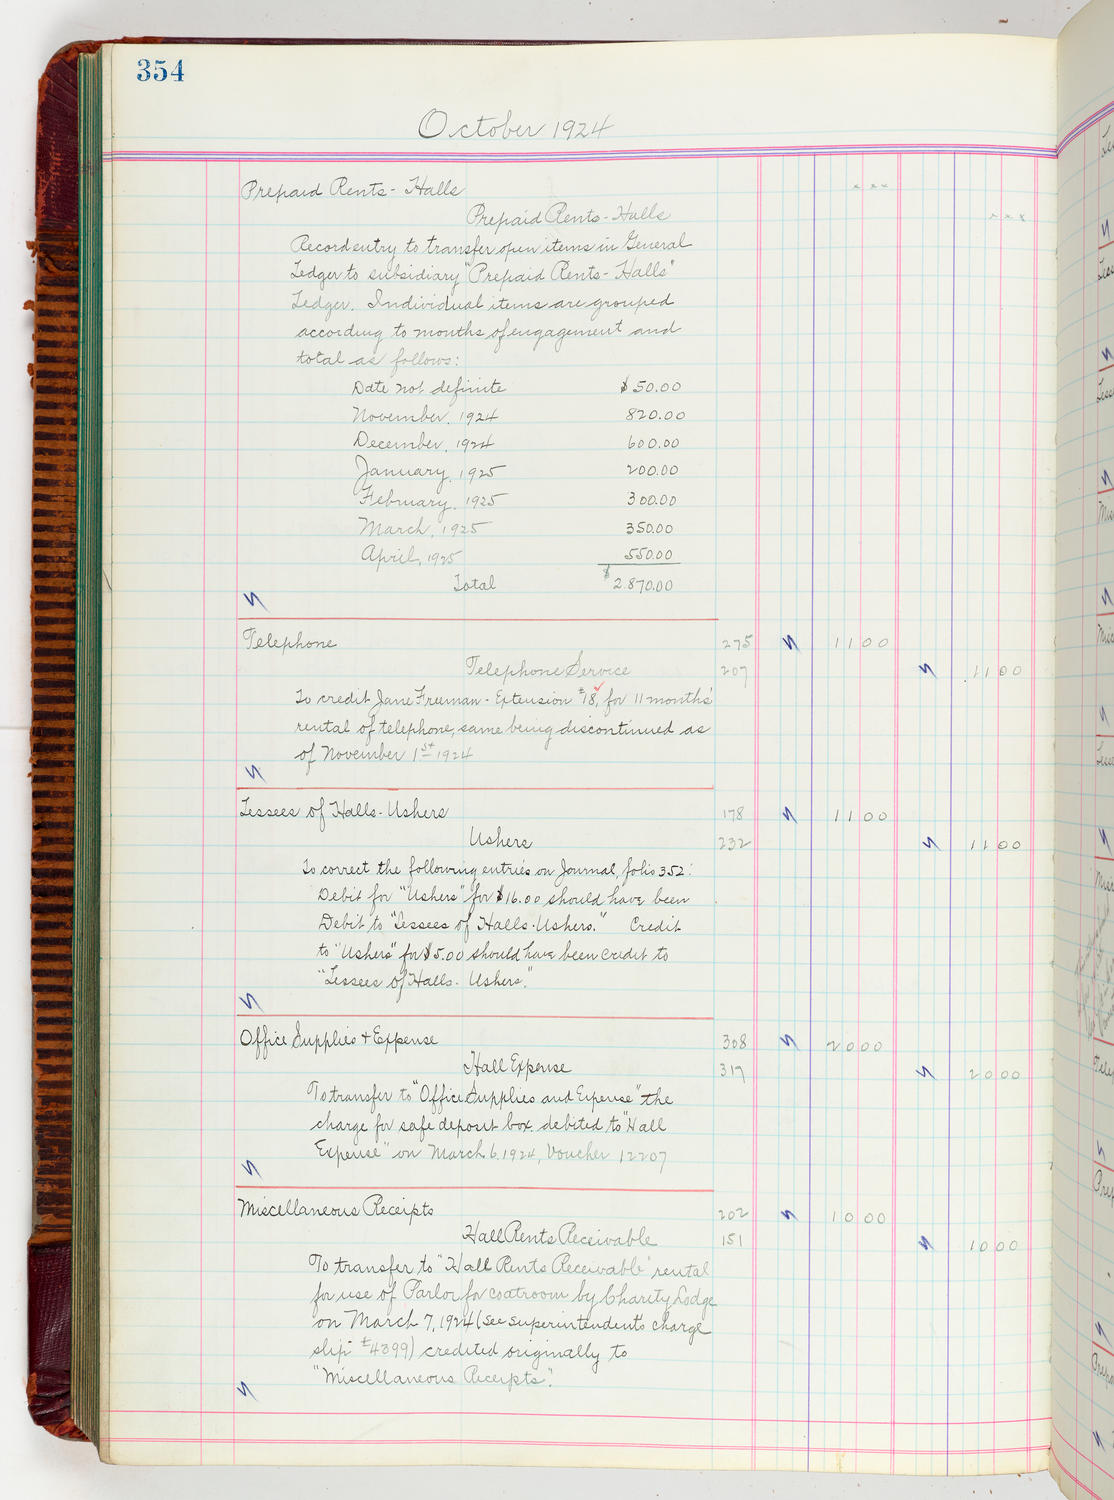 354
October 1924
Prepaid Rents - Halls x x x
Prepaid Rents - Halls x x x
Record entry to transfer open items in General
Ledger to subsidiary "Prepaid Rents - Halls"
Ledger. Individual items are grouped
according to months of engagement and
total as follows:
Date not definite $50.00
November, 1924 820.00
December, 1924 600.00
January, 1925 200.00
February, 1925 300.00
March, 1925 350.00
April, 1925 550.00
Total $2.870.00
Telephone 275 11 00
Telephone Service 207 11 00
To credit Jane Freeman - Extension #18, for 11 months'
rental of telephone, same being discontinued as
of November 1st 1924
Lessees of Halls - Ushers 178 11 00
Ushers 232 11 00
To correct the following entries on Journal, folio 352:
Debit for "Ushers" for $16.00 should have been
Debit to "Lessees of Halls - Ushers." Credit
to "Ushers" for $5.00 should have been credit to
"Lessees of Halls - Ushers."
Office Supplies + Expense 308 20 00
Hall Expense 317 20 00
To transfer to "Office Supplies and Expense" the
charge for safe deposit box debited to "Hall
Expense" on March 6, 1924, Voucher 12207
Miscellaneous Receipts 202 10 00
Hall Rents Receivable 151 10 00
To transfer to "Hall Rents Receivable" rental
for use of Parlor for coatroom by Charity Lodge
on March 7, 1924 (See Superintendent's charge
slip #4399) credited originally to
"Miscellaneous Receipts".